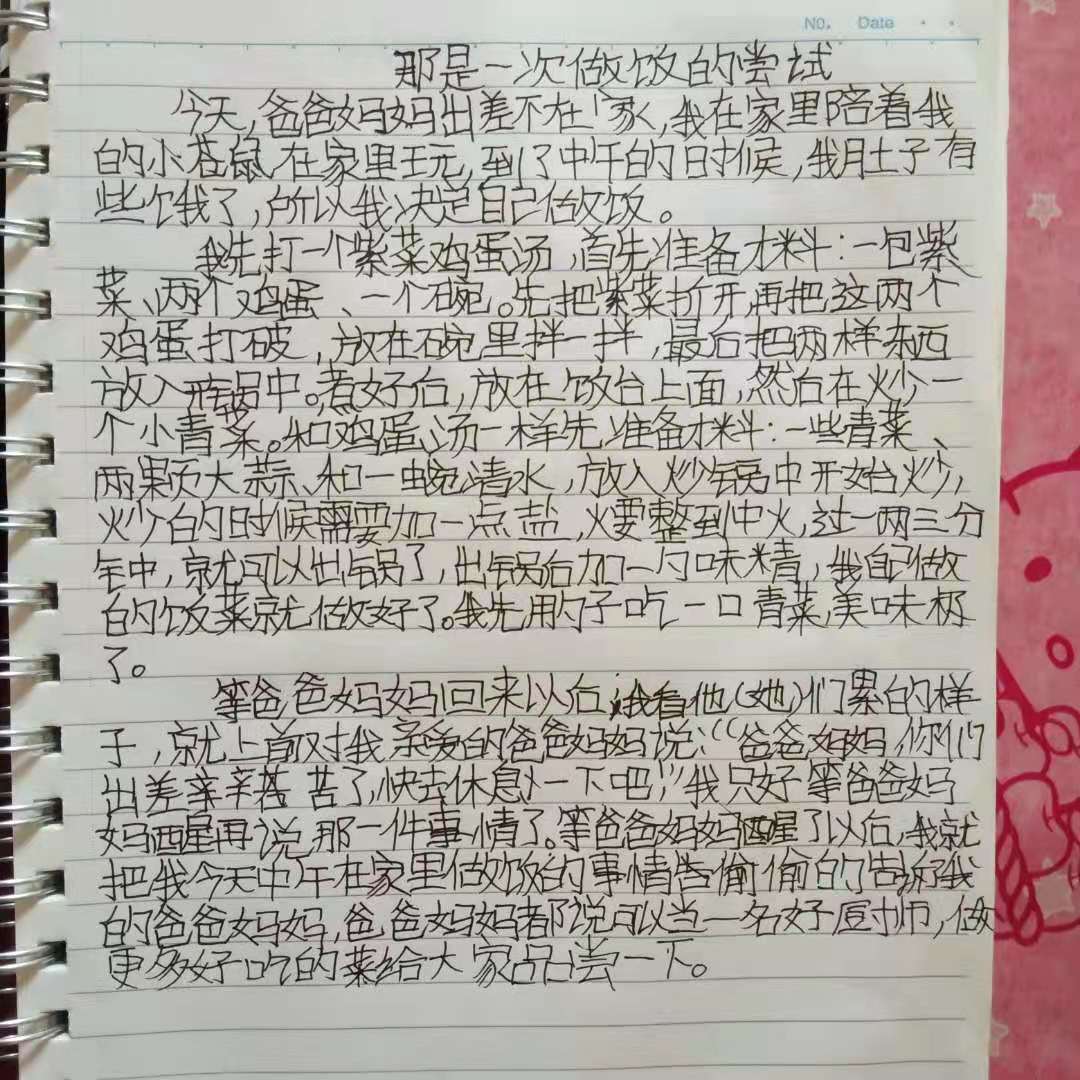 No. Date
那是一次做饭的尝试
今天，爸爸妈妈出差不在家，我在家里陪着我
的小苍鼠在家里玩，到了中午的时候，我肚子有
些饿了，所以我决定自己做饭。
我先打一个紫菜鸡蛋汤，首先准备材料：一包紫
菜、两个鸡蛋、一个碗。先把紫菜折开，再把这两个
鸡蛋打破，放在碗里拌一拌，最后把两样东西
放入锅中。煮好后，放在饭台上面，然后在炒一
个小青菜。和鸡蛋汤一样先准备材料：一些青菜、
两颗大蒜、和一碗清水，放入炒锅中开始炒，
炒的时候需要加一点盐，火要整到中火，过一两三分
钟中，就可以出锅了，出锅后加一勺味精，我自己做
的饭菜就做好了。我先用勺子吃一口青菜，美味极
了。
等爸爸妈妈回来以后，我看他（她）们累的样
子，就上前对我亲爱的爸爸妈妈说：“爸爸妈妈，你们
出差辛苦了，快去休息一下吧！”我只好等爸爸妈
妈醒再说那一件事情了。等爸爸妈妈醒了以后，我就
把我今天中午在家里做饭的事情偷偷的告诉我
的爸爸妈妈，爸爸妈妈都说可以当一名好厨师，做
更多好吃的菜给大家品尝一下。